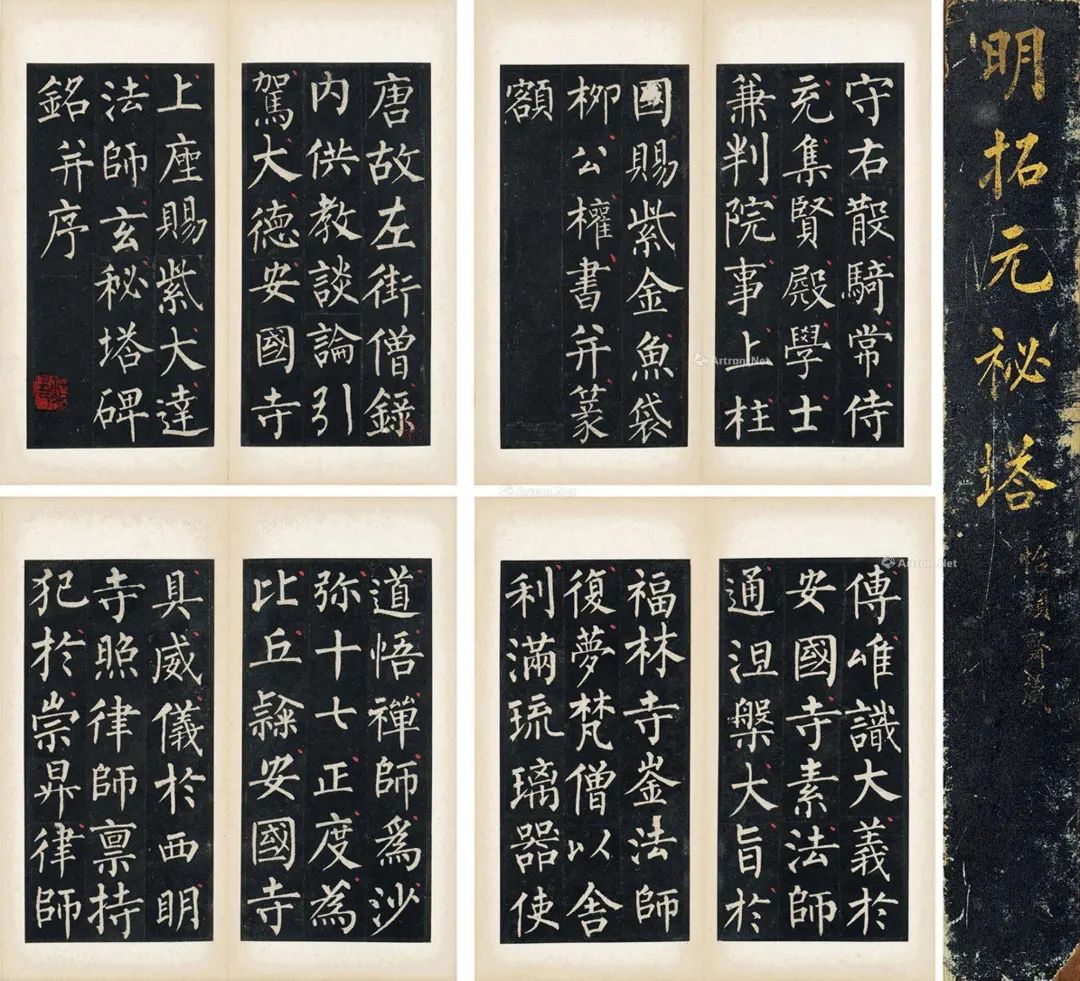 明拓元祕塔
唐故左街僧錄
内供教談論引
駕大德安國寺
上座賜紫大達
法師玄秘塔碑
銘并序
守右散騎常侍
充集賢殿學士
兼判院事上柱
國賜紫金魚袋
柳公權書并篆
額
道悟禪師爲沙
弥十七正度為
比丘隸安國寺
具威儀於西明
寺照律師禀持
犯於崇昇律師
傳唯識大義於
安國寺素法師
通涅槃大旨於
福林寺崟法師
復夢梵僧以舍
利滿琉璃器使
Artron.Net
Artron.Net
Artron.Net